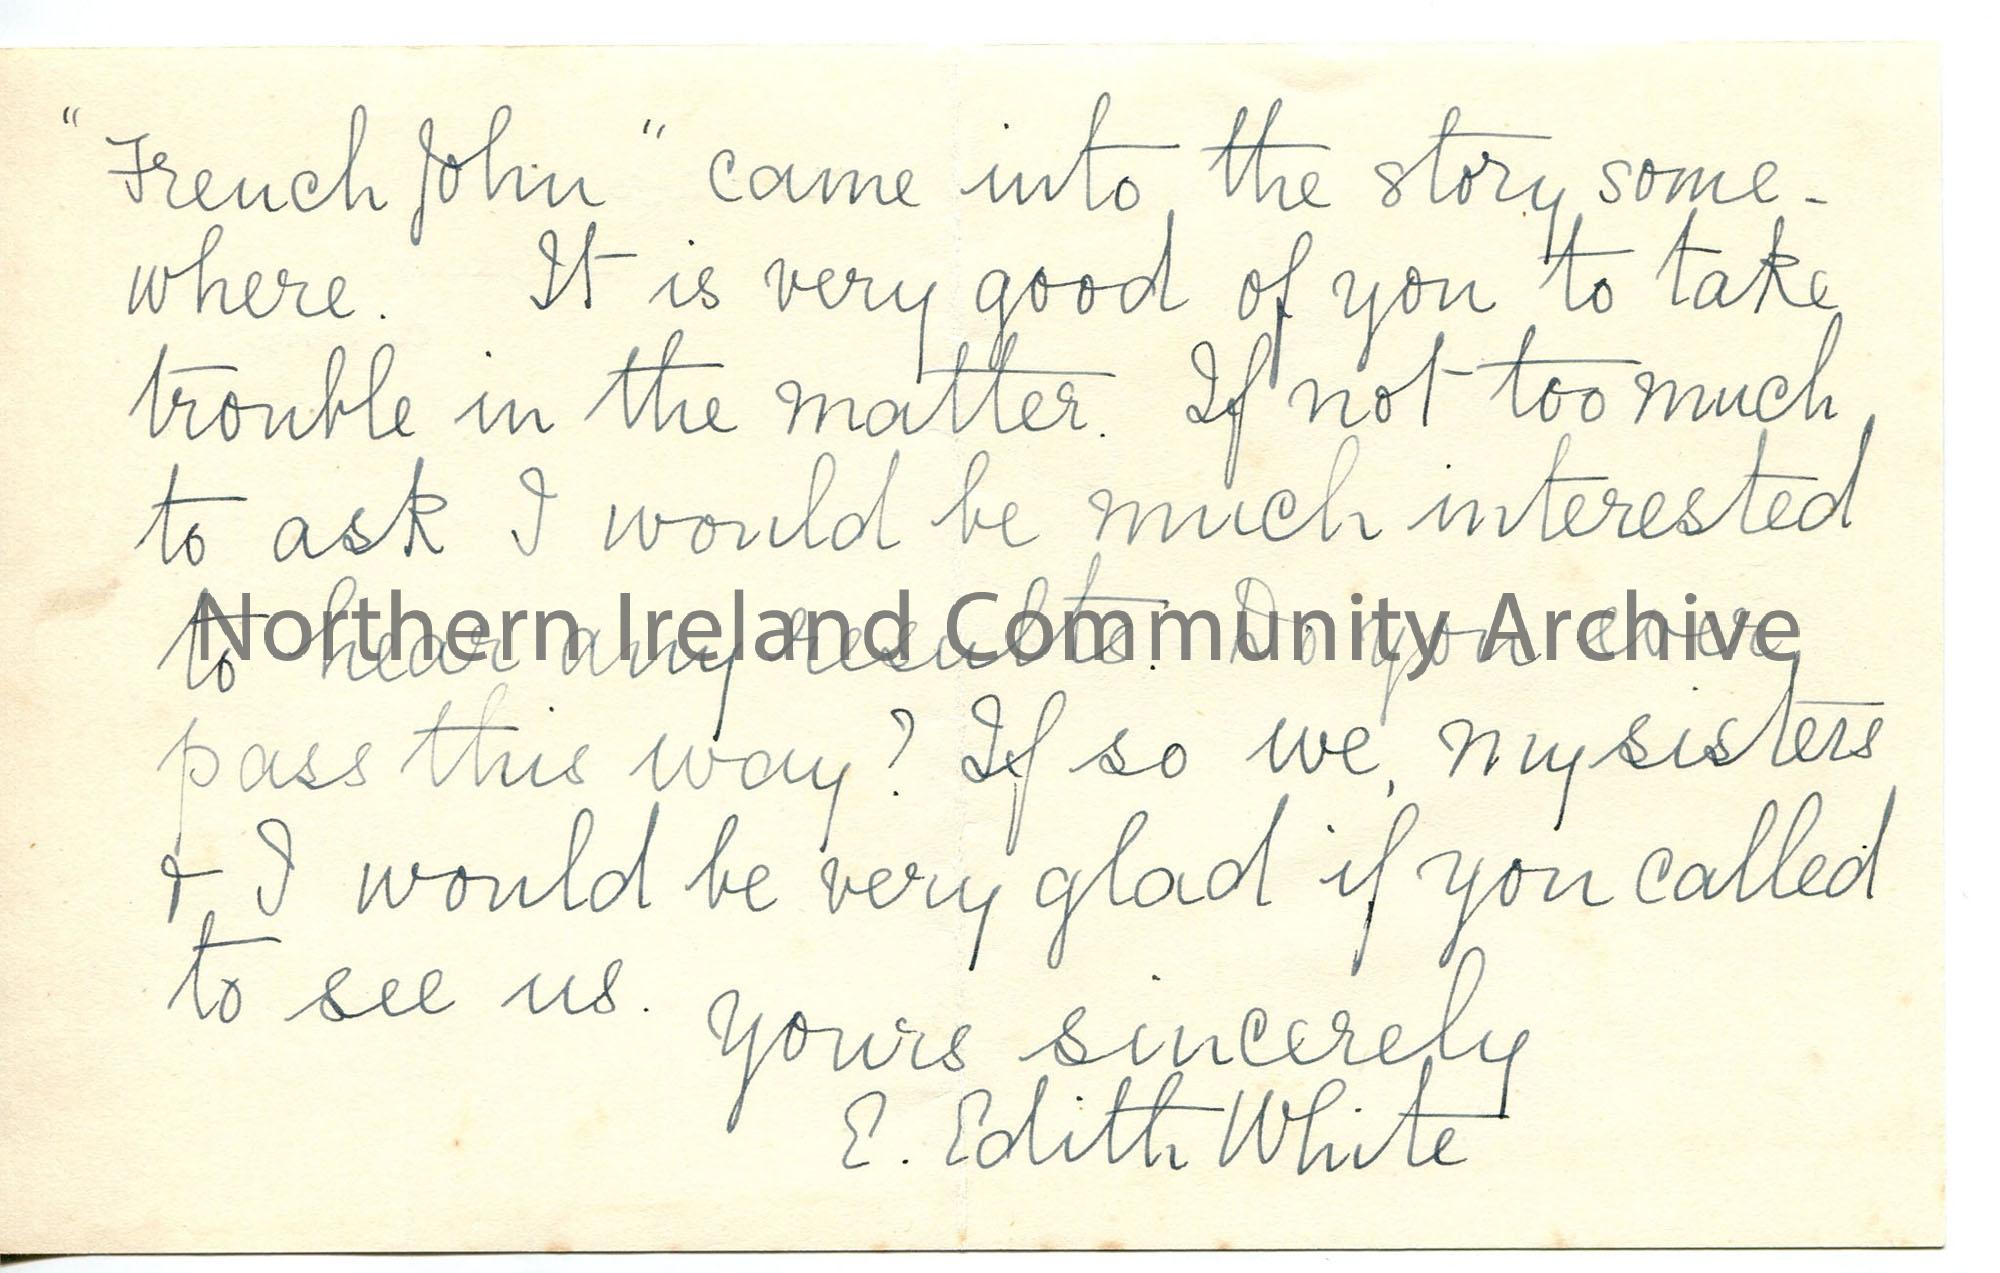 "French John" came into the story some-
where. It is very good of you to take
trouble in the matter. If not too much
to ask I would be much interested
to hear any results. Do you ever
Northern Ireland Community Archive
pass this way? If so we, my sisters
& I would be very glad if you called
to see us.
Yours sincerely
E. Edith White